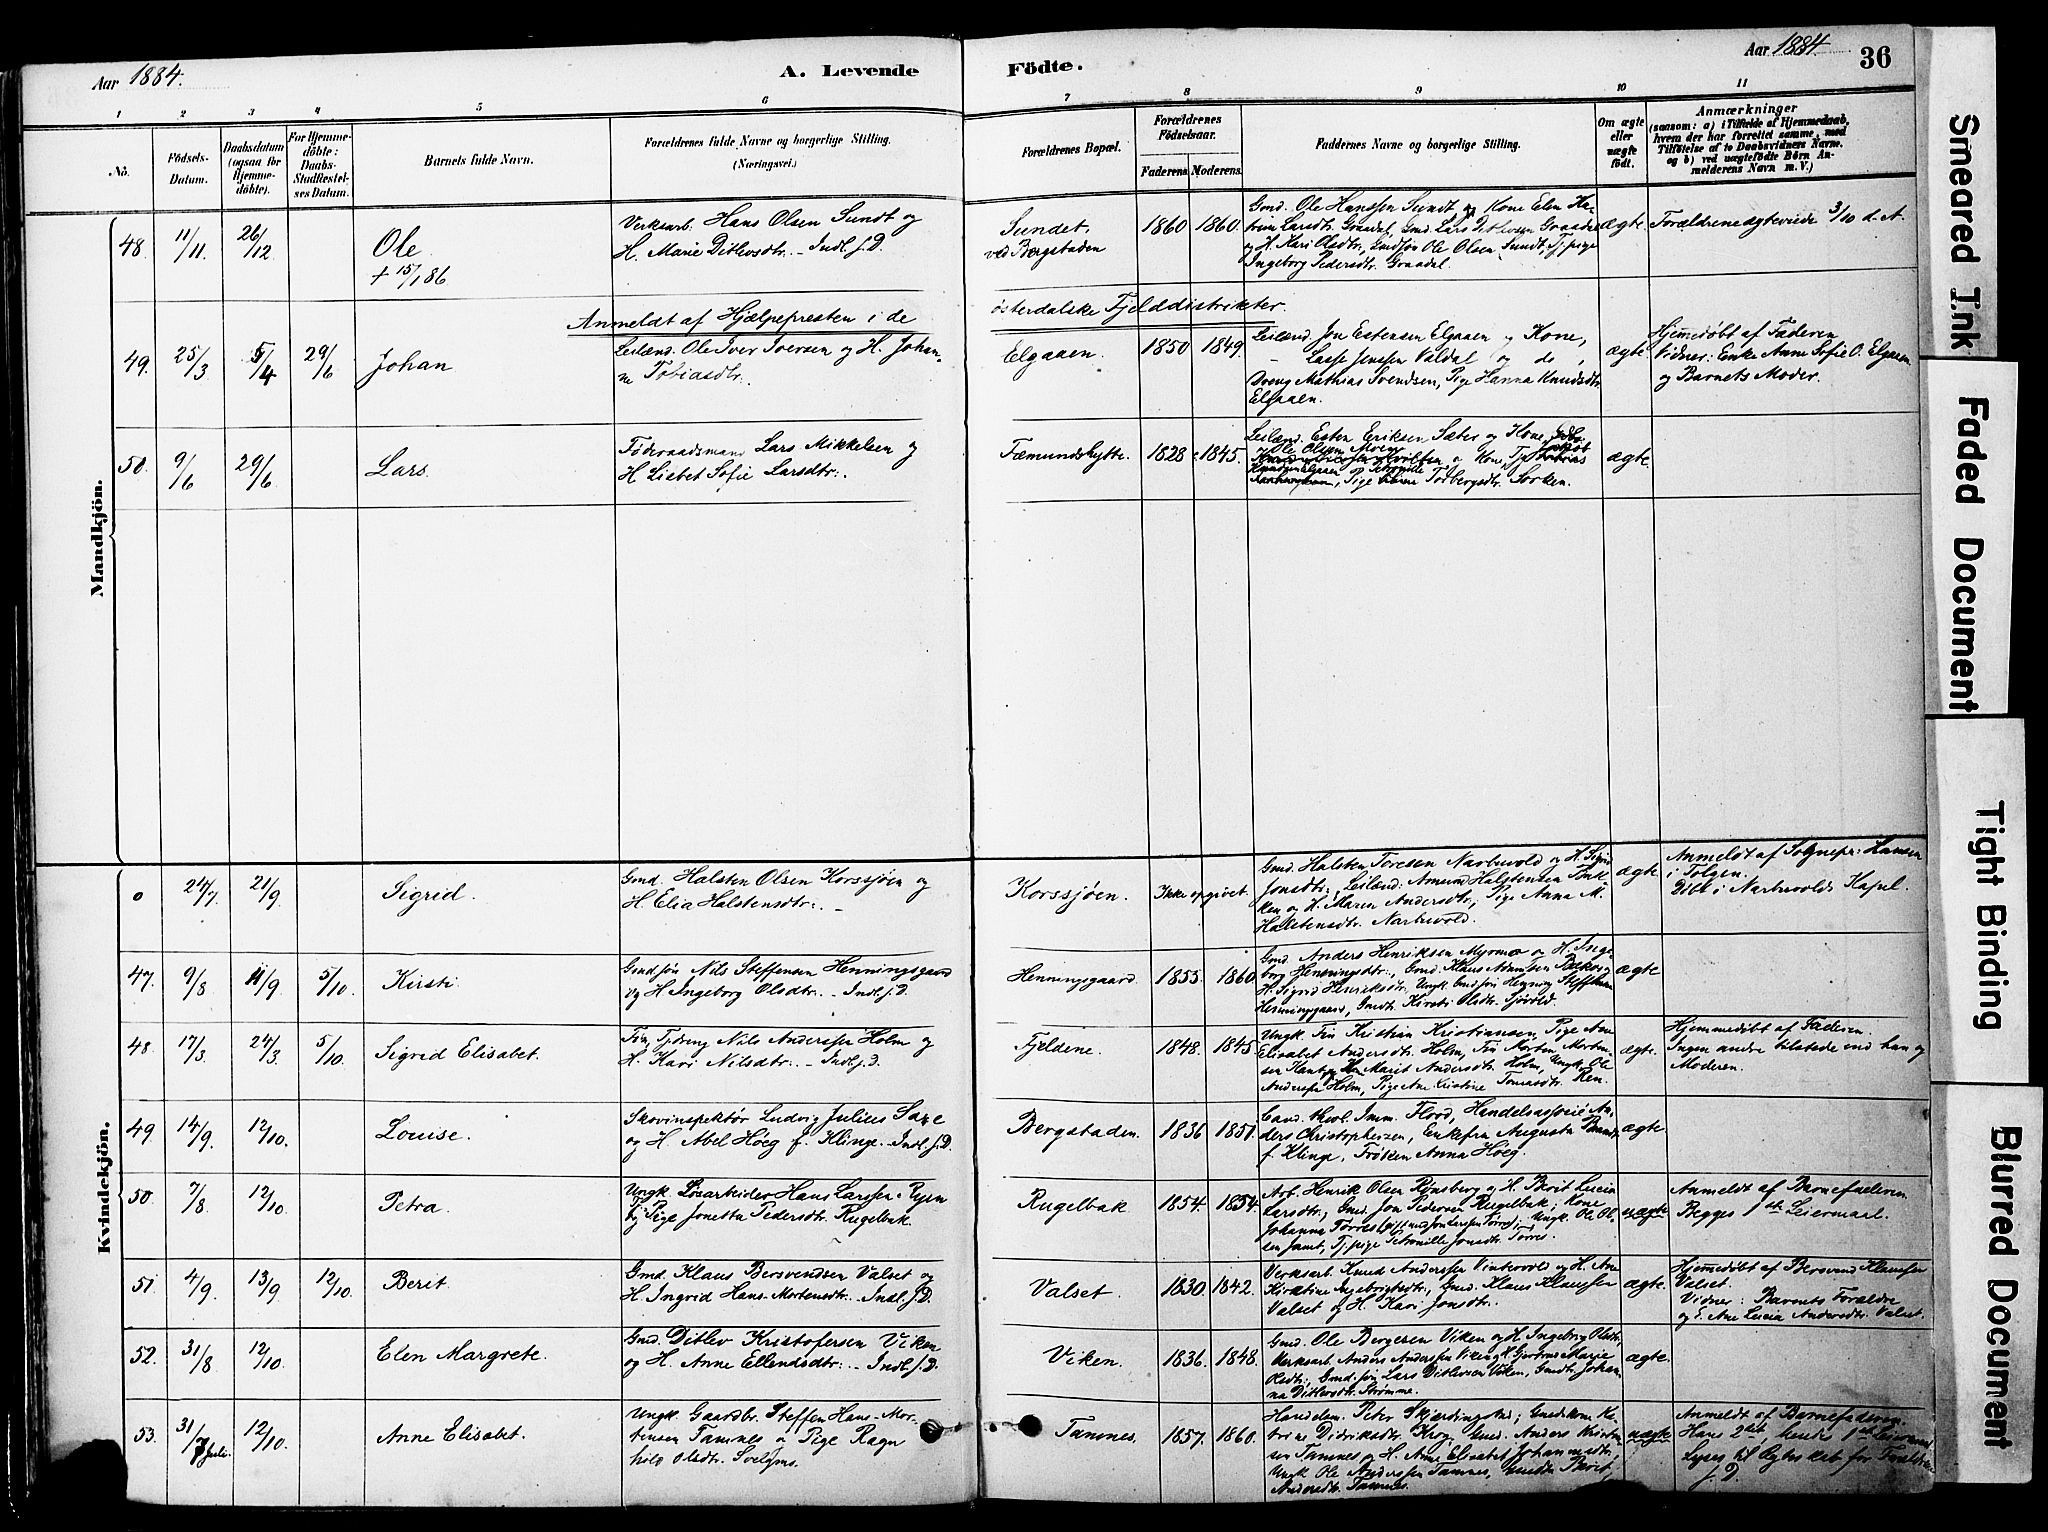 Aar 1884.
A. Levende
Födte.
Aar 1884.
36
1 2 3 4 5 6 7 8 9 10 11
No.
Födsels-
Datum.
Daabsdatum
(ogsaa for
Hjemme-
döbte).
For Hjemme-
döbte:
Daabs-
Stadfæstel-
ses Datum.
Barnets fulde Navn.
Forældrenes fulde Navne og borgerlige Stilling.
(Næringsvei.)
Forældrenes Bopæl.
Forældrenes
Födselsaar.
Faderens.
Moderens.
Faddernes Navne og borgerlige Stilling.
Om ægte
eller
uægte
födt.
Anmærkninger
(saasom: a) i Tilfælde af Hjemmedaab,
hvem der har forrettet samme, med
Tilföielse af to Daabsvidners Navne,
og b) ved uægtefödte Børn An-
melderens Navn m. V.)
Mandkjön.
48. 11/11. 26/12
Ole
+ 15/1 86
Verksarb. Hans Olsen Sundt og
H. Marie Ditlevsdtr. - Indl. f. D.
Sundet
ved Bergstaden
1860 1860.
Gmd. Ole Hanssen Sundt og Kone Elen Ka-
trine Larsdtr. Graadal, Gmd. Lars Ditlevsen Graadal
og H. Kari Olsdtr., Gmdsön Ole Olsen Sundt, Tj. pige
Ingeborg Pedersdtr. Graadal.
ægte.
Forældrene ægteviede 3/10 d. A.
Anmeldt af Hjælpepresten i de
österdalske Fjelddistrikter.
49. 25/3 5/4 29/6
Johan
Leilænd. Ole Iver Iversen og H. Johan-
ne Tobiasdtr.
Elgaaen.
1850 1849.
Leilænd. Jon Estensen Elgaaen og Kone,
- Lasse Jenssen Valdal og do,
Dreng Mathias Svendsen, Pige Hanna Knudsdtr.
Elgaaen.
ægte.
Hjemmedöbt af Faderen
Vidner: Enke Anne Sofie O. Elgaaen
og Barnets Moder.
50. 9/6 29/6
Lars.
Föderaadsmand Lars Mikkelsen og
H. Lisbet Sofie Larsdtr.
Fæmundshytte.
1828 1845.
Leilænd. Esten Eriksen Sæter og Kone,
Ole Olsen
Pige Petronille Torbergsdtr. Sorken.
ægte.
Kvindekjön.
0 24/7. 21/9.
Sigrid.
Gmd. Halsten Olsen Korssjöen og
H. Elia Halstensdtr. -
Korssjöen.
Ikke opgivet.
Gmd. Halsten Toresen Narbuvold og H. Sigrid
Jonsdtr., Leilænd. Amund Halstensen Funk
ken og H. Maren Andersdtr., Pige Anna M.
Halstensdtr. Narbuvold.
ægte.
Anmeldt af Sognepr: Hansen
i Tolgen.
Döbt i Narbuvolds Kapel.
47. 9/8 /9. 5/10.
Kirsti.
Gmdsön Nils Steffensen Henningsgaard
og H. Ingeborg Olsdtr. - Indl. f. D.
Henningsgaard.
1855. 1860.
Gmd. Anders Henriksen Myrmoe og H. Inge-
borg Henningsdtr., Gmd. Klaus Adamsen
H. Sigrid Henriksdtr., Ungk. Gmdsön Henning Steffensen
Henningsgaard, Gmdtr. Kirsti Olsdtr. Sjövold.
ægte
48. 17/3. 24/3 5/10.
Sigrid Elisabet.
Fin, Tjdreng Nils Anderssen Holm og
H. Kari Nilsdtr. - Indl. f. D.
Fjeldene.
1848. 1845
Ungk. Fin Kristian Kristiansen, Pige Ane
Elisabet Andersdtr. Holm, Fin Morten Morten-
sen Kant og Kone Marit Andersdtr. Holm, Ungk. Ole
Anderssen Holm, Pige Ane Kristine Tomasdtr. Ren.
ægte.
Hjemmedöbt af Faderen.
Ingen andre tilstede end han og
Moderen.
49. 14/9. 12/10.
Louise.
Skovinspektör Ludvig Julius Saxe
og H. Abel Höeg f. Klinge. - Indl. f. D.
Bergstaden.
1836 1851.
Cand. theol. Imm. Flood, Handelsassessor An-
ders Christophersen, Enkefru Augusta Brandt
f. Klinge, Fröken Anna Höeg.
ægte
50. 7/8 12/10.
Petra.
Ungk. Lösarbeider Hans Larssen Ryen
og Pige Jonetta Pedersdtr. Rugelbak.
Rugelbak
1854. 1854.
Arb. Henrik Olsen Rönsberg og H. Berit Lucia
Larsdtr., Gmd. Jon Pedersen Rugelbak, Kone
Johanna Torres gift med Jon Larssen Torres, Ungk. Ole Ol-
sen Jamt, Tj. pige Petronille Jonsdtr. Torres.
uægte
Anmeldt af Barnefaderen.
Begges 1ste Leiermaal.
51. 4/9. 13/9 12/10.
Berit.
Gmd. Klaus Bersvendsen Valset og
H. Ingrid Hans-Mortensdtr. - Indl. f. D.
Valset.
1830. 1842.
Verksarb. Knud Anderssen Vintervold og H. Ane
Kirstine Ingebrigtsdtr., Gmd. Klaus Klaussen
Valset og H. Kari Jonsdtr.
ægte
Hjemmedöbt af Bersvend Klaussen
Valset.
Vidner: Barnets Forældre
og E. Ane Lucia Andersdtr. Valset.
52. 31/8 12/10.
Elen Margrete.
Gmd. Ditlev Kristofersen Viken
og H. Anne Ellendsdtr. - Indl. f. D.
Viken.
1836. 1848.
Gmd. Ole Bergersen Viken og H. Ingeborg Olsdtr.
Verksarb. Anders Anderssen Viken og H. Gjertrud Marie
Olsdtr., Gmd. sön Lars Ditlevsen Viken, Gmdtr. Johan-
na Ditlevsdtr. Strömme.
ægte.
53. 31/7 Juli. 12/10.
Anne Elisabet.
Ungk. Gaardbr. Steffen Hans-Mor-
tensen Tamnes og Pige Ragn-
hild Olsdtr. Svelgmo.
Tamnes.
1857. 1860.
Handelsm. Peter Skjærdingstad, Gmdskone Ka-
trine Didriksdtr. Krog, Gmd. Anders Kristen-
sen Tamnes og H. Anne Elisabet Johannesdtr.,
Ungk. Ole Anderssen Tamnes, Berit
Andersdtr. Tamnes.
uægte
Anmeldt af Barnefaderen.
Hans 2det, hendes 1ste Leiermaal
Lyses til Ægteskab for Forældrene
f. D.
Smeared Ink
Faded Document
Tight Binding
Blurred Document